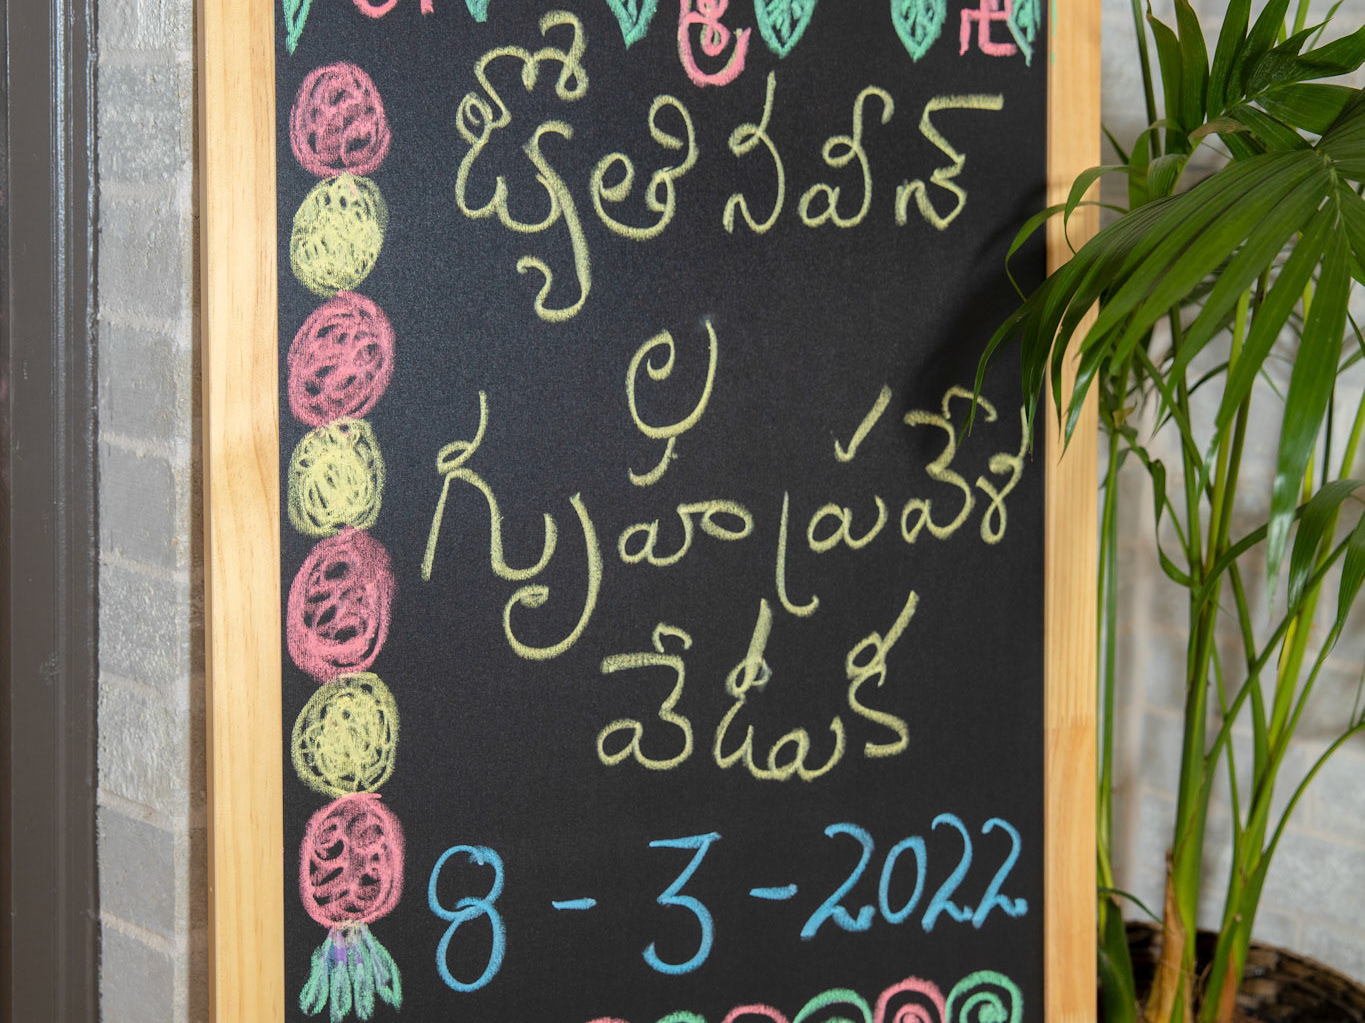 జ్యోతి నవీన్
ల
గృహ ప్రవేశ
వేడుక
8-3-2022